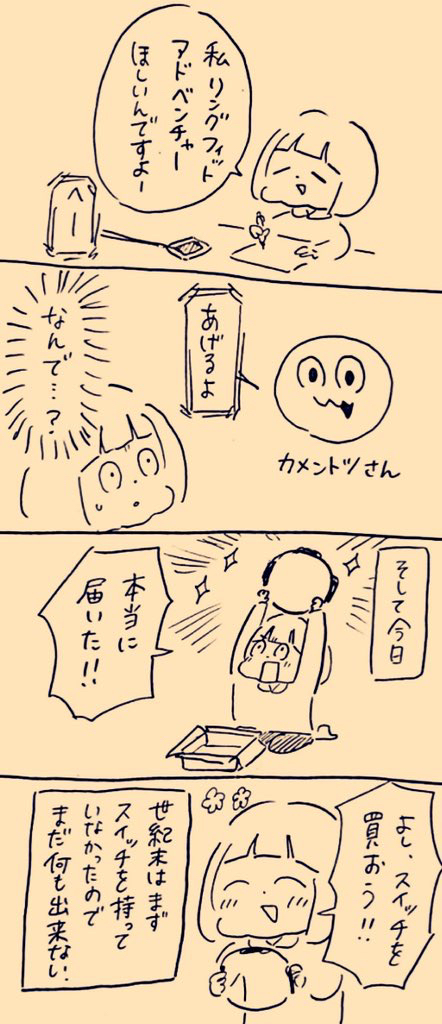 私リングフィット
アドベンチャー
ほしいんですよー
へー
あげるよ
カメントツさん
なんで…?
そして今日
本当に
届いた!!
よし、スイッチを
買おう!!
世紀末はまず
スイッチを持って
いなかったので
まだ何も出来ない.